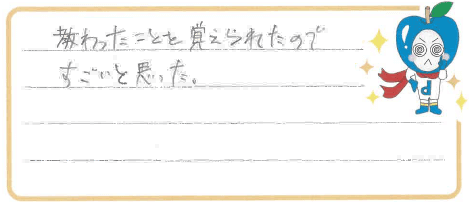 教わったことを覚えられたので
すごいと思った。
d